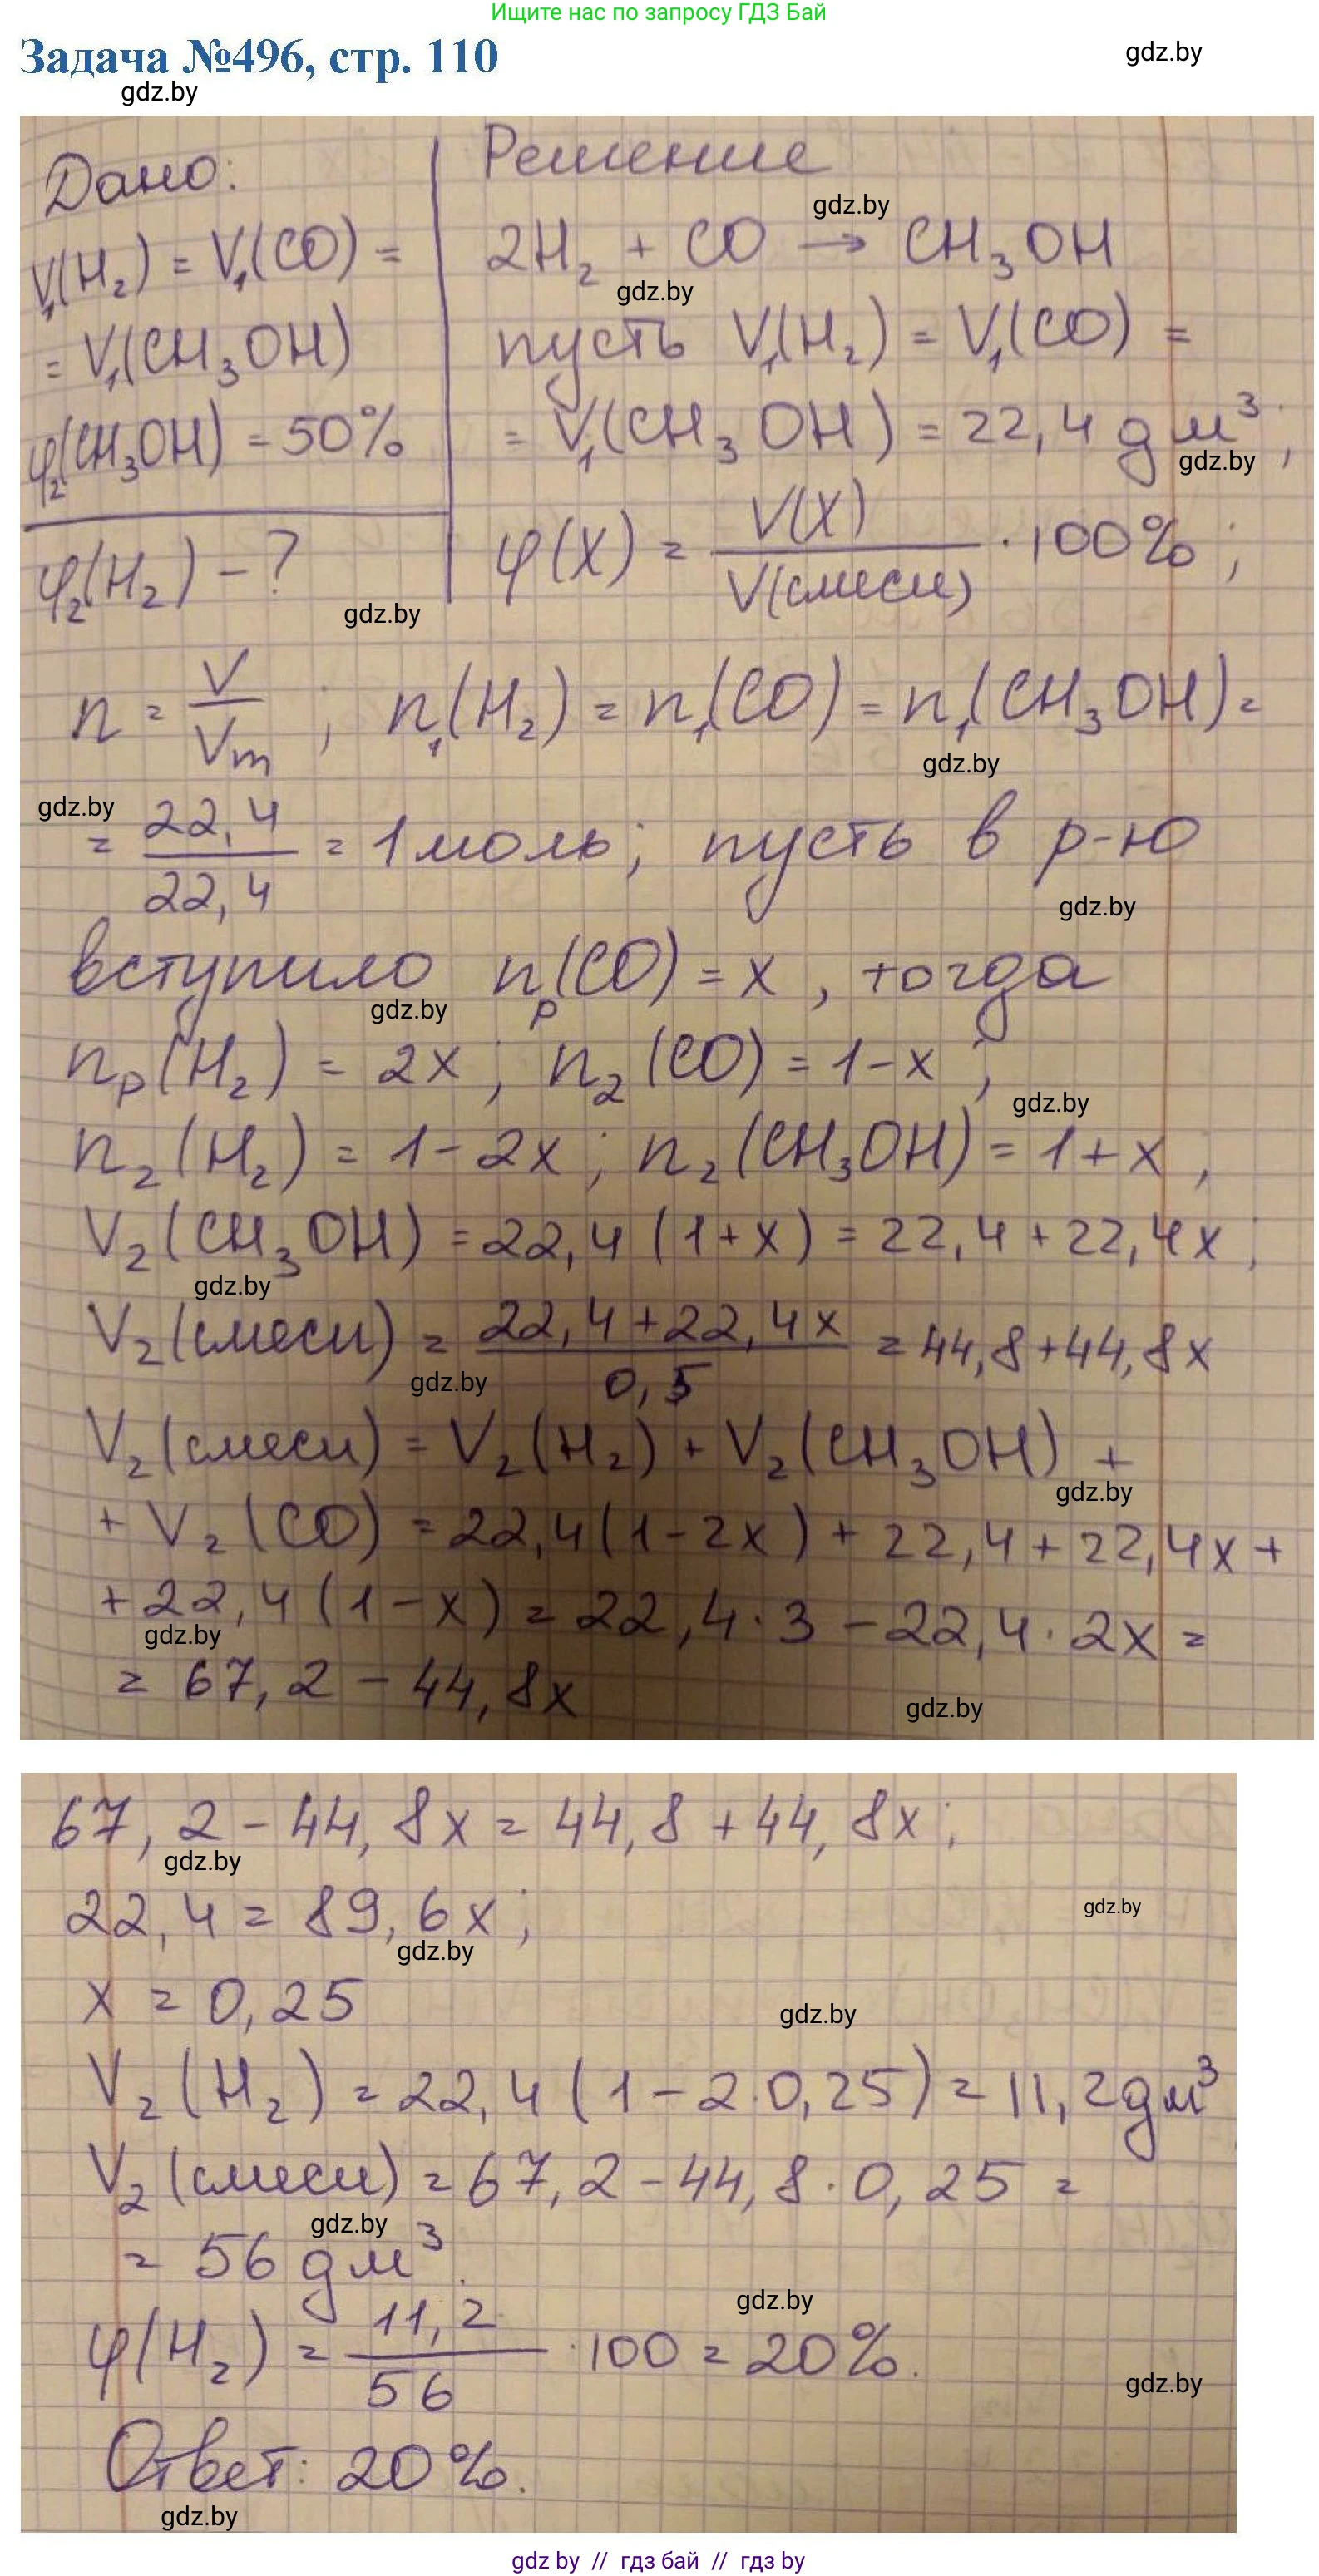 Ищите нас по запросу ГДЗ Бай
Задача №496, стр. 110
gdz.by
gdz.by
Дано:
V₁(H₂) = V₁(CO) =
= V₁(CH₃OH)
φ₂(CH₃OH) = 50%
φ₂(H₂) - ?
gdz.by
Решение
gdz.by
2H₂ + CO → CH₃OH
gdz.by
пусть V₁(H₂) = V₁(CO) =
= V₁(CH₃OH) = 22,4 дм³;
gdz.by
φ(X) = V(X) / V(смеси) · 100%;
n = V / Vm ; n₁(H₂) = n₁(CO) = n₁(CH₃OH) =
gdz.by
gdz.by
= 22,4 / 22,4 = 1 моль; пусть в р-ю
gdz.by
вступило nр(CO) = x, тогда
gdz.by
nр(H₂) = 2x; n₂(CO) = 1-x;
gdz.by
n₂(H₂) = 1-2x; n₂(CH₃OH) = 1+x,
V₂(CH₃OH) = 22,4(1+x) = 22,4+22,4x;
gdz.by
V₂(смеси) = 22,4+22,4x / 0,5 = 44,8+44,8x
gdz.by
V₂(смеси) = V₂(H₂) + V₂(CH₃OH) +
gdz.by
+ V₂(CO) = 22,4(1-2x) + 22,4+22,4x+
+22,4(1-x) = 22,4·3 - 22,4·2x =
gdz.by
= 67,2 - 44,8x
gdz.by
67,2 - 44,8x = 44,8 + 44,8x;
gdz.by
22,4 = 89,6x;
gdz.by
gdz.by
x = 0,25
gdz.by
V₂(H₂) = 22,4(1-2·0,25) = 11,2 дм³
V₂(смеси) = 67,2 - 44,8·0,25 =
gdz.by
= 56 дм³.
gdz.by
φ(H₂) = 11,2 / 56 · 100 = 20%.
gdz.by
Ответ: 20%.
gdz.by
gdz by // гдз бай // гдз by